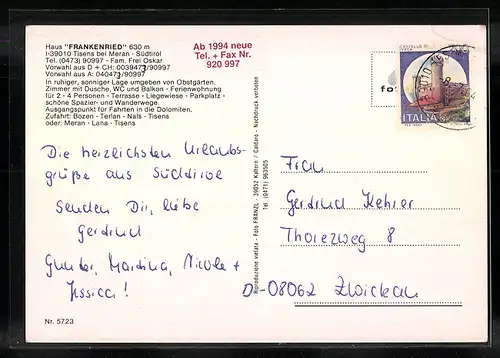 Haus "FRANKENRIED" 630 m
I-39010 Tisens bei Meran - Südtirol
Tel. (0473) 90997 - Fam. Frei Oskar
Vorwahl aus D + CH: 003947 /90997
Vorwahl aus A: 04047 /90997
In ruhiger, sonniger Lage umgeben von Obstgärten.
Zimmer mit Dusche, WC und Balkon - Ferienwohnung
für 2 - 4 Personen - Terrasse - Liegewiese - Parkplatz -
schöne Spazier- und Wanderwege.
Ausgangspunkt für Fahrten in die Dolomiten.
Zufahrt: Bozen - Terlan - Nals - Tisens
oder: Meran - Lana - Tisens
Ab 1994 neue
Tel. + Fax Nr.
920 997
Die herzlichsten Urlaubs-
grüße aus Südtirol
senden Dir, liebe
Gertrud
Gunter, Martina, Nicole +
Jessica!
Nr. 5723
Reproduzione vietata - Foto FRANZL - 39052 Kaltern / Caldaro - Nachdruck verboten
Tel (0471) 963505
fo
CASTELLO DI
ITALIA
39010
Frau
Gertrud Kehrer
Thorezweg 8
D-08062 Zwickau